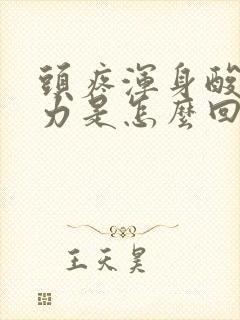 頭疼渾身酸
力是怎麼回
王天昊